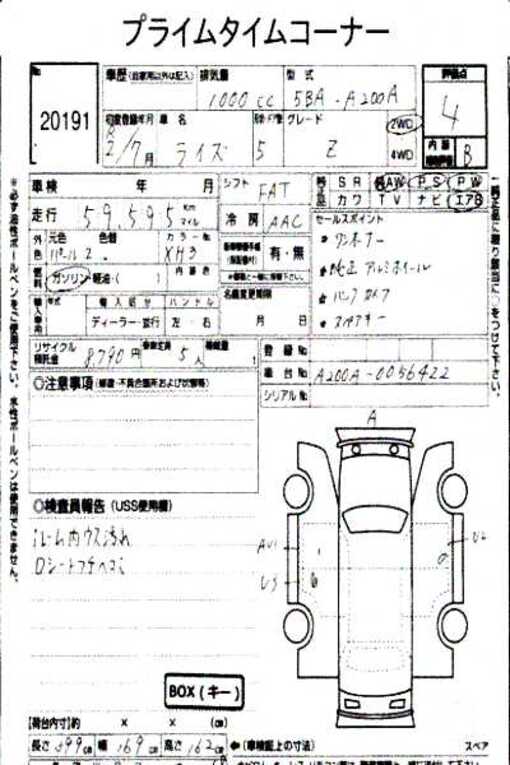 プライムタイムコーナー
No 20191
車歴 (自家用以外は記入)
排気量 1000 cc
型式 5BA-A200A
評価点 4
初度登録年月 R 2/7月
車名 ライズ
5
グレード Z
2WD
4WD
内装 B
車検 年 月
シフト FAT
SR AW PS PW
カワ TV ナビ エアB
走行 59,595 Km マイル
冷房 AAC
セールスポイント
ワンオーナー
純正アルミホイール
スペアキー
外色 元色 色替 カラーNo
パール 2. XH3
内装色
有・無
燃料 ガソリン・軽油・( )
名義変更期限
月 日
輸入車用 年式 輸入区分 ハンドル
ディーラー・並行 左・右
リサイクル預託金 8,790円
乗車定員 5人
積載量 t
登録No
車台No A200A-0056422
シリアルNo
◎注意事項
◎検査員報告 (USS使用欄)
ルーム内ウス汚れ
Dシートフチヘコミ
A
AU1
U2
U3
BOX (キー)
【荷台内寸】約 × × (cm)
長さ 399cm 幅 169cm 高さ 162cm ←(車検証上の寸法)
スペア
※必ず油性ボールペンをご使用下さい。水性ボールペンは使用できません。